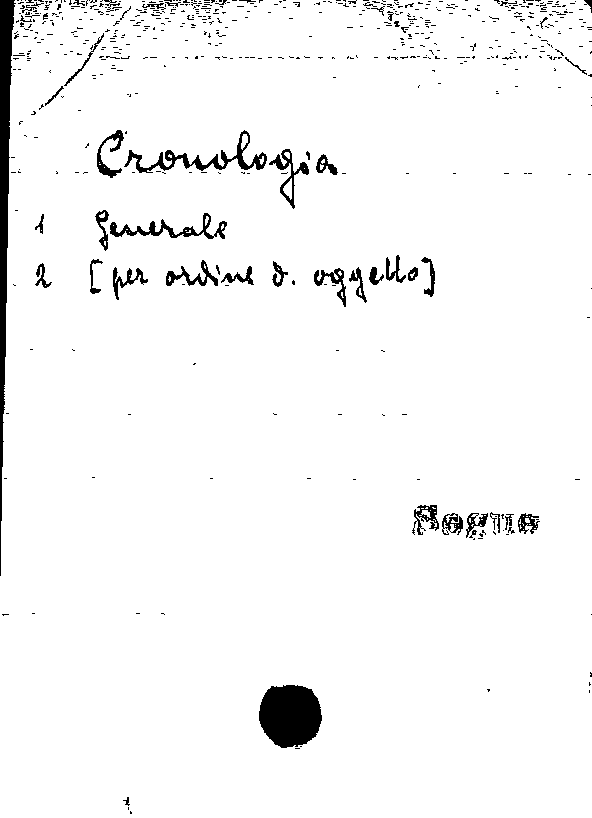 Cronologia
1 Generale
2 [per ordine d. oggetto]
Segue